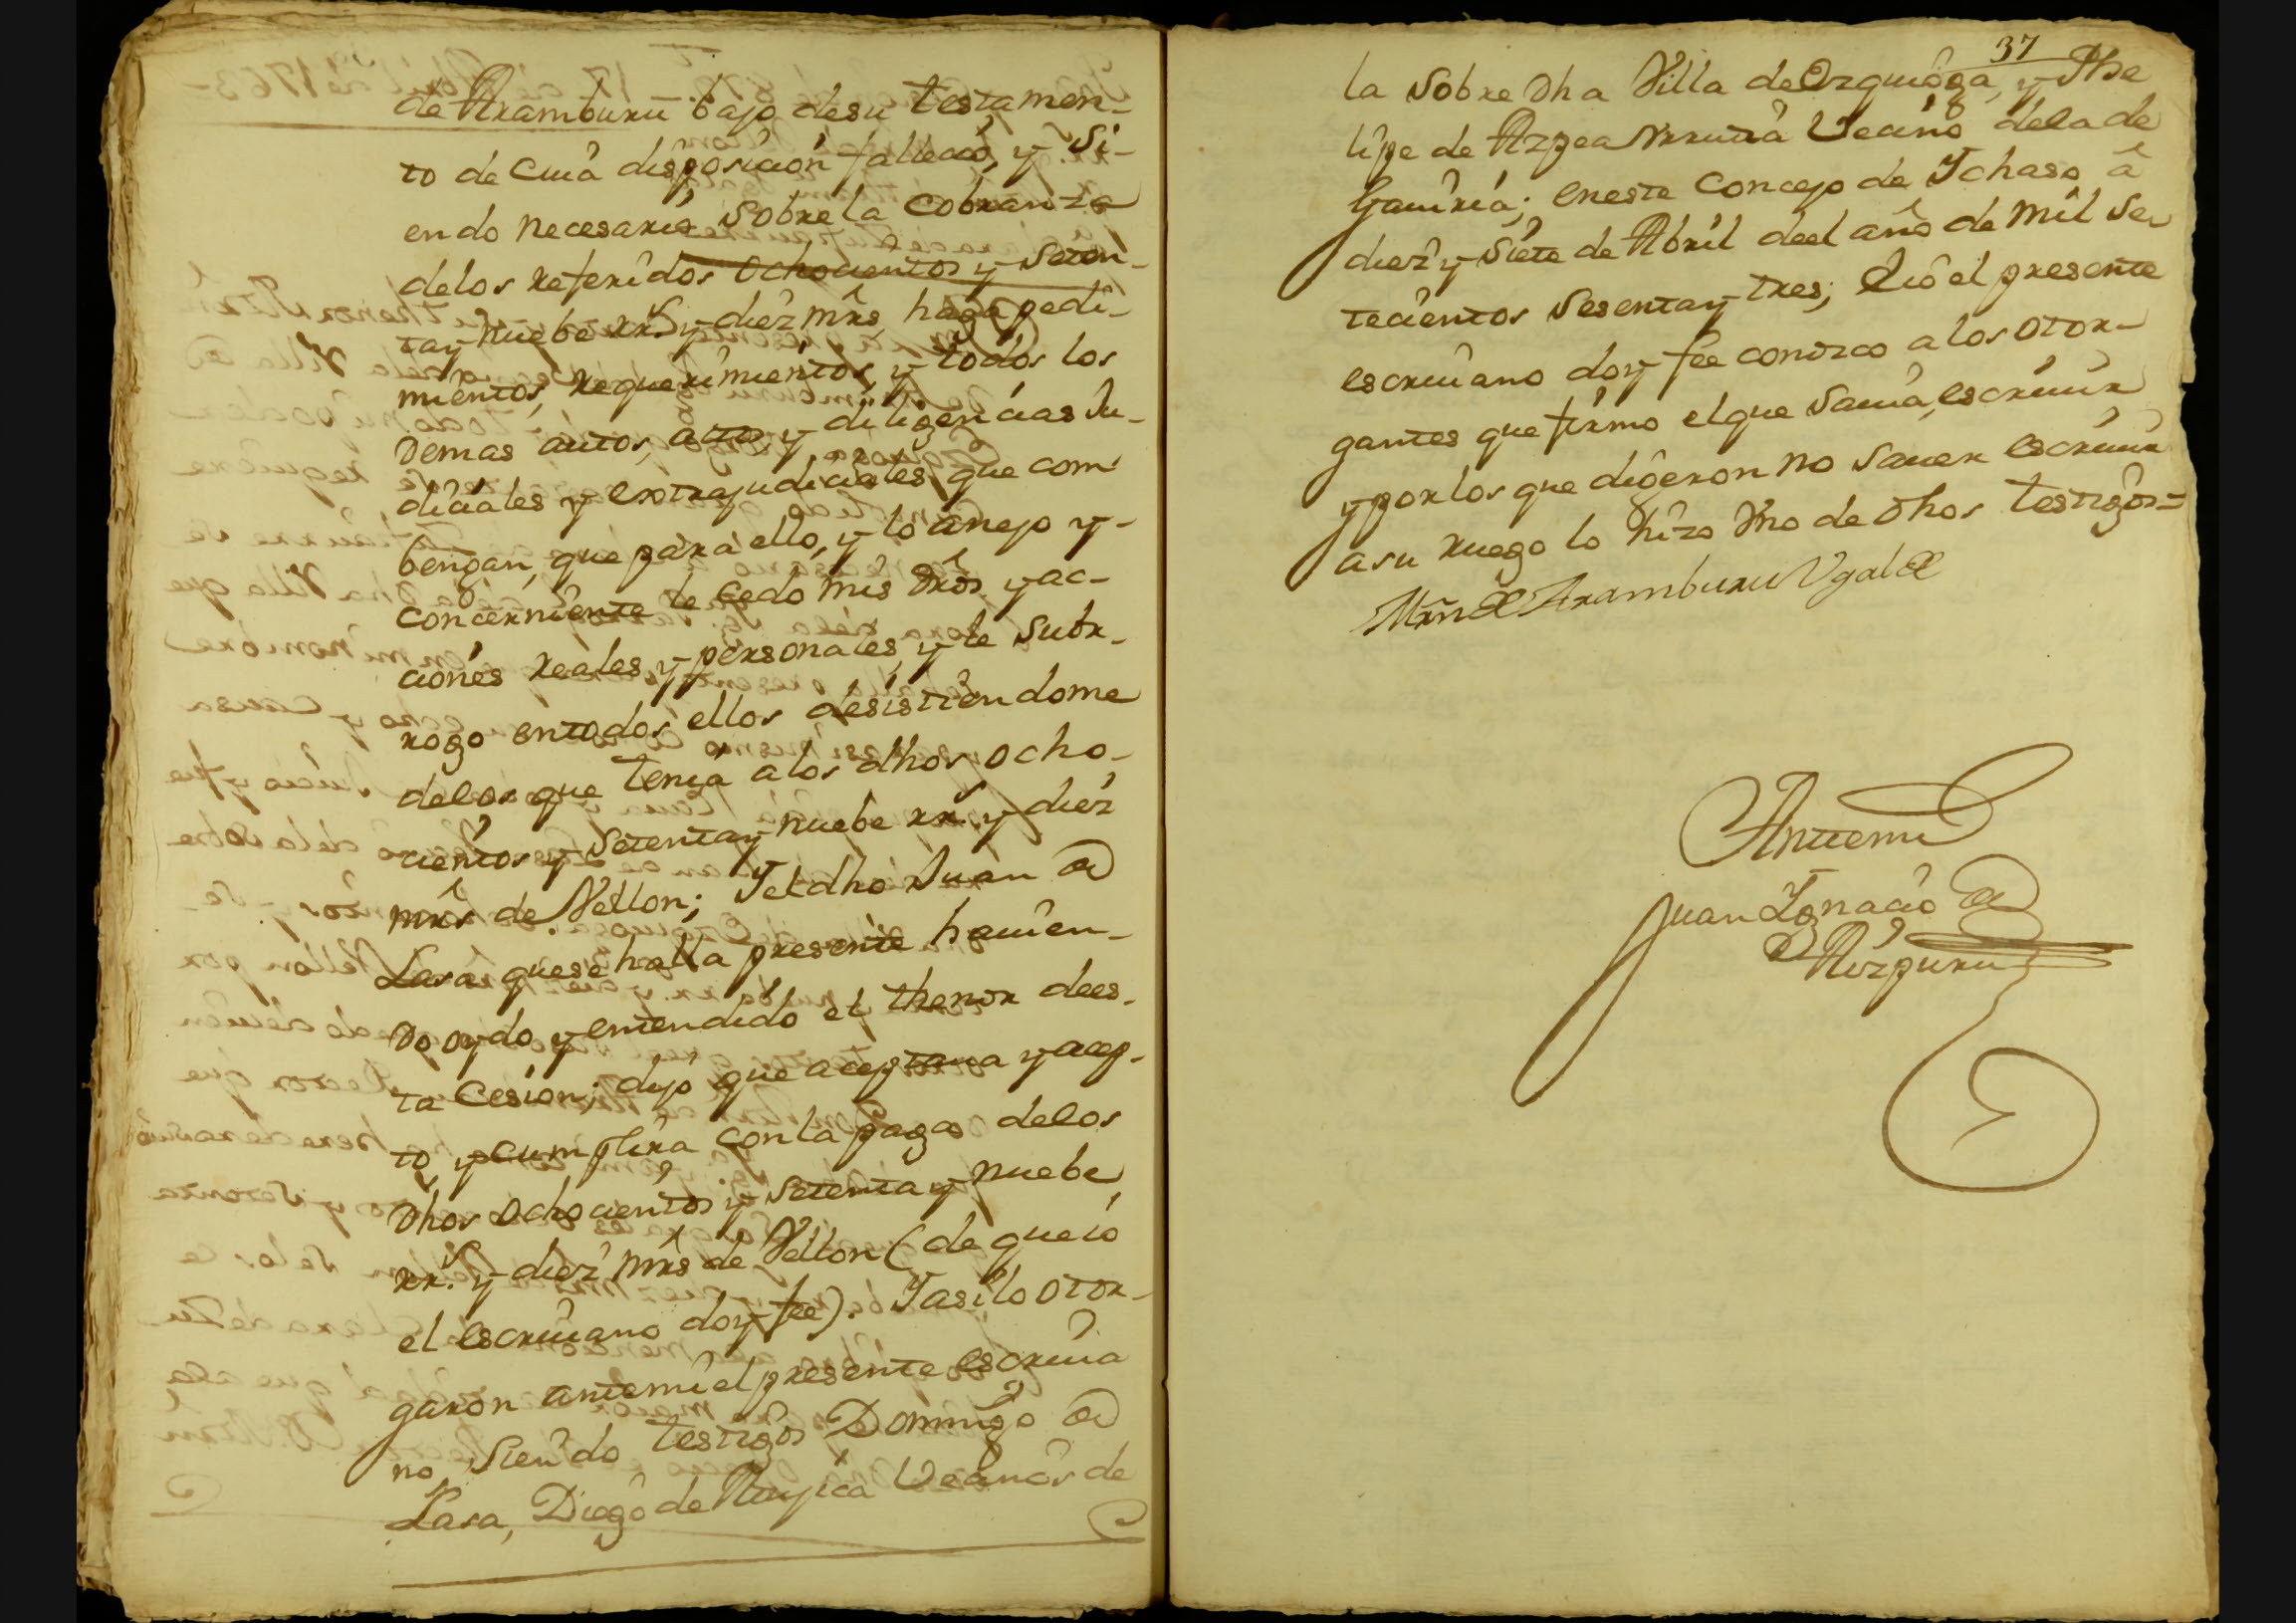 de Aramburu bajo de su testamen-
to de cuia disposicion fallecio, y si-
endo necesario sobre la cobranza
de los referidos ochocientos y seten-
ta y nuebe rr.s y diez mrs, haga pedi-
mientos, requerimientos, y todos los
demas autos, y diligencias Ju-
diciales y extrajudiciales, que com-
bengan, que para ello, y lo anejo y
concerniente le cedo mis dros y ac-
ciones reales, y personales, y le subr-
rogo en todos ellos desistiendome
de los que tenia a los dhos ocho-
cientos y setenta y nuebe rr.s y diez
mrs de Vellon; Y el dho Juan de
Lasa que se halla presente havien-
do oydo y entendido el thenor de es-
ta Cesion; dijo que aceptava y acep-
to, y cumplira con la paga de los
dhos ochocientos y setenta y nuebe
rr.s y diez mrs de Vellon (de que io
el escrivano doy fee). Y asi lo otor-
garon ante mi el presente escriva
no, siendo testigos Domingo de
Lasa, Diego de Vecinos de
37
la sobre dha Villa de Ezquioga, y Phe
lipe de Azpea Vecino de la de
Gaviria; en este Concejo de Ychaso â
diez y siete de Abril de el año de mil se
tecientos sesenta y tres; è io el presente
escrivano doy fee conozco a los otor-
gantes que firmo el que savia escrivir
y por los que digeron no saver escrivir
a su ruego lo hizo vno de dhos testigos=
Mrn de Aramburu Vgalde
Ante mi
Juan Ygnacio de
Aizpuru